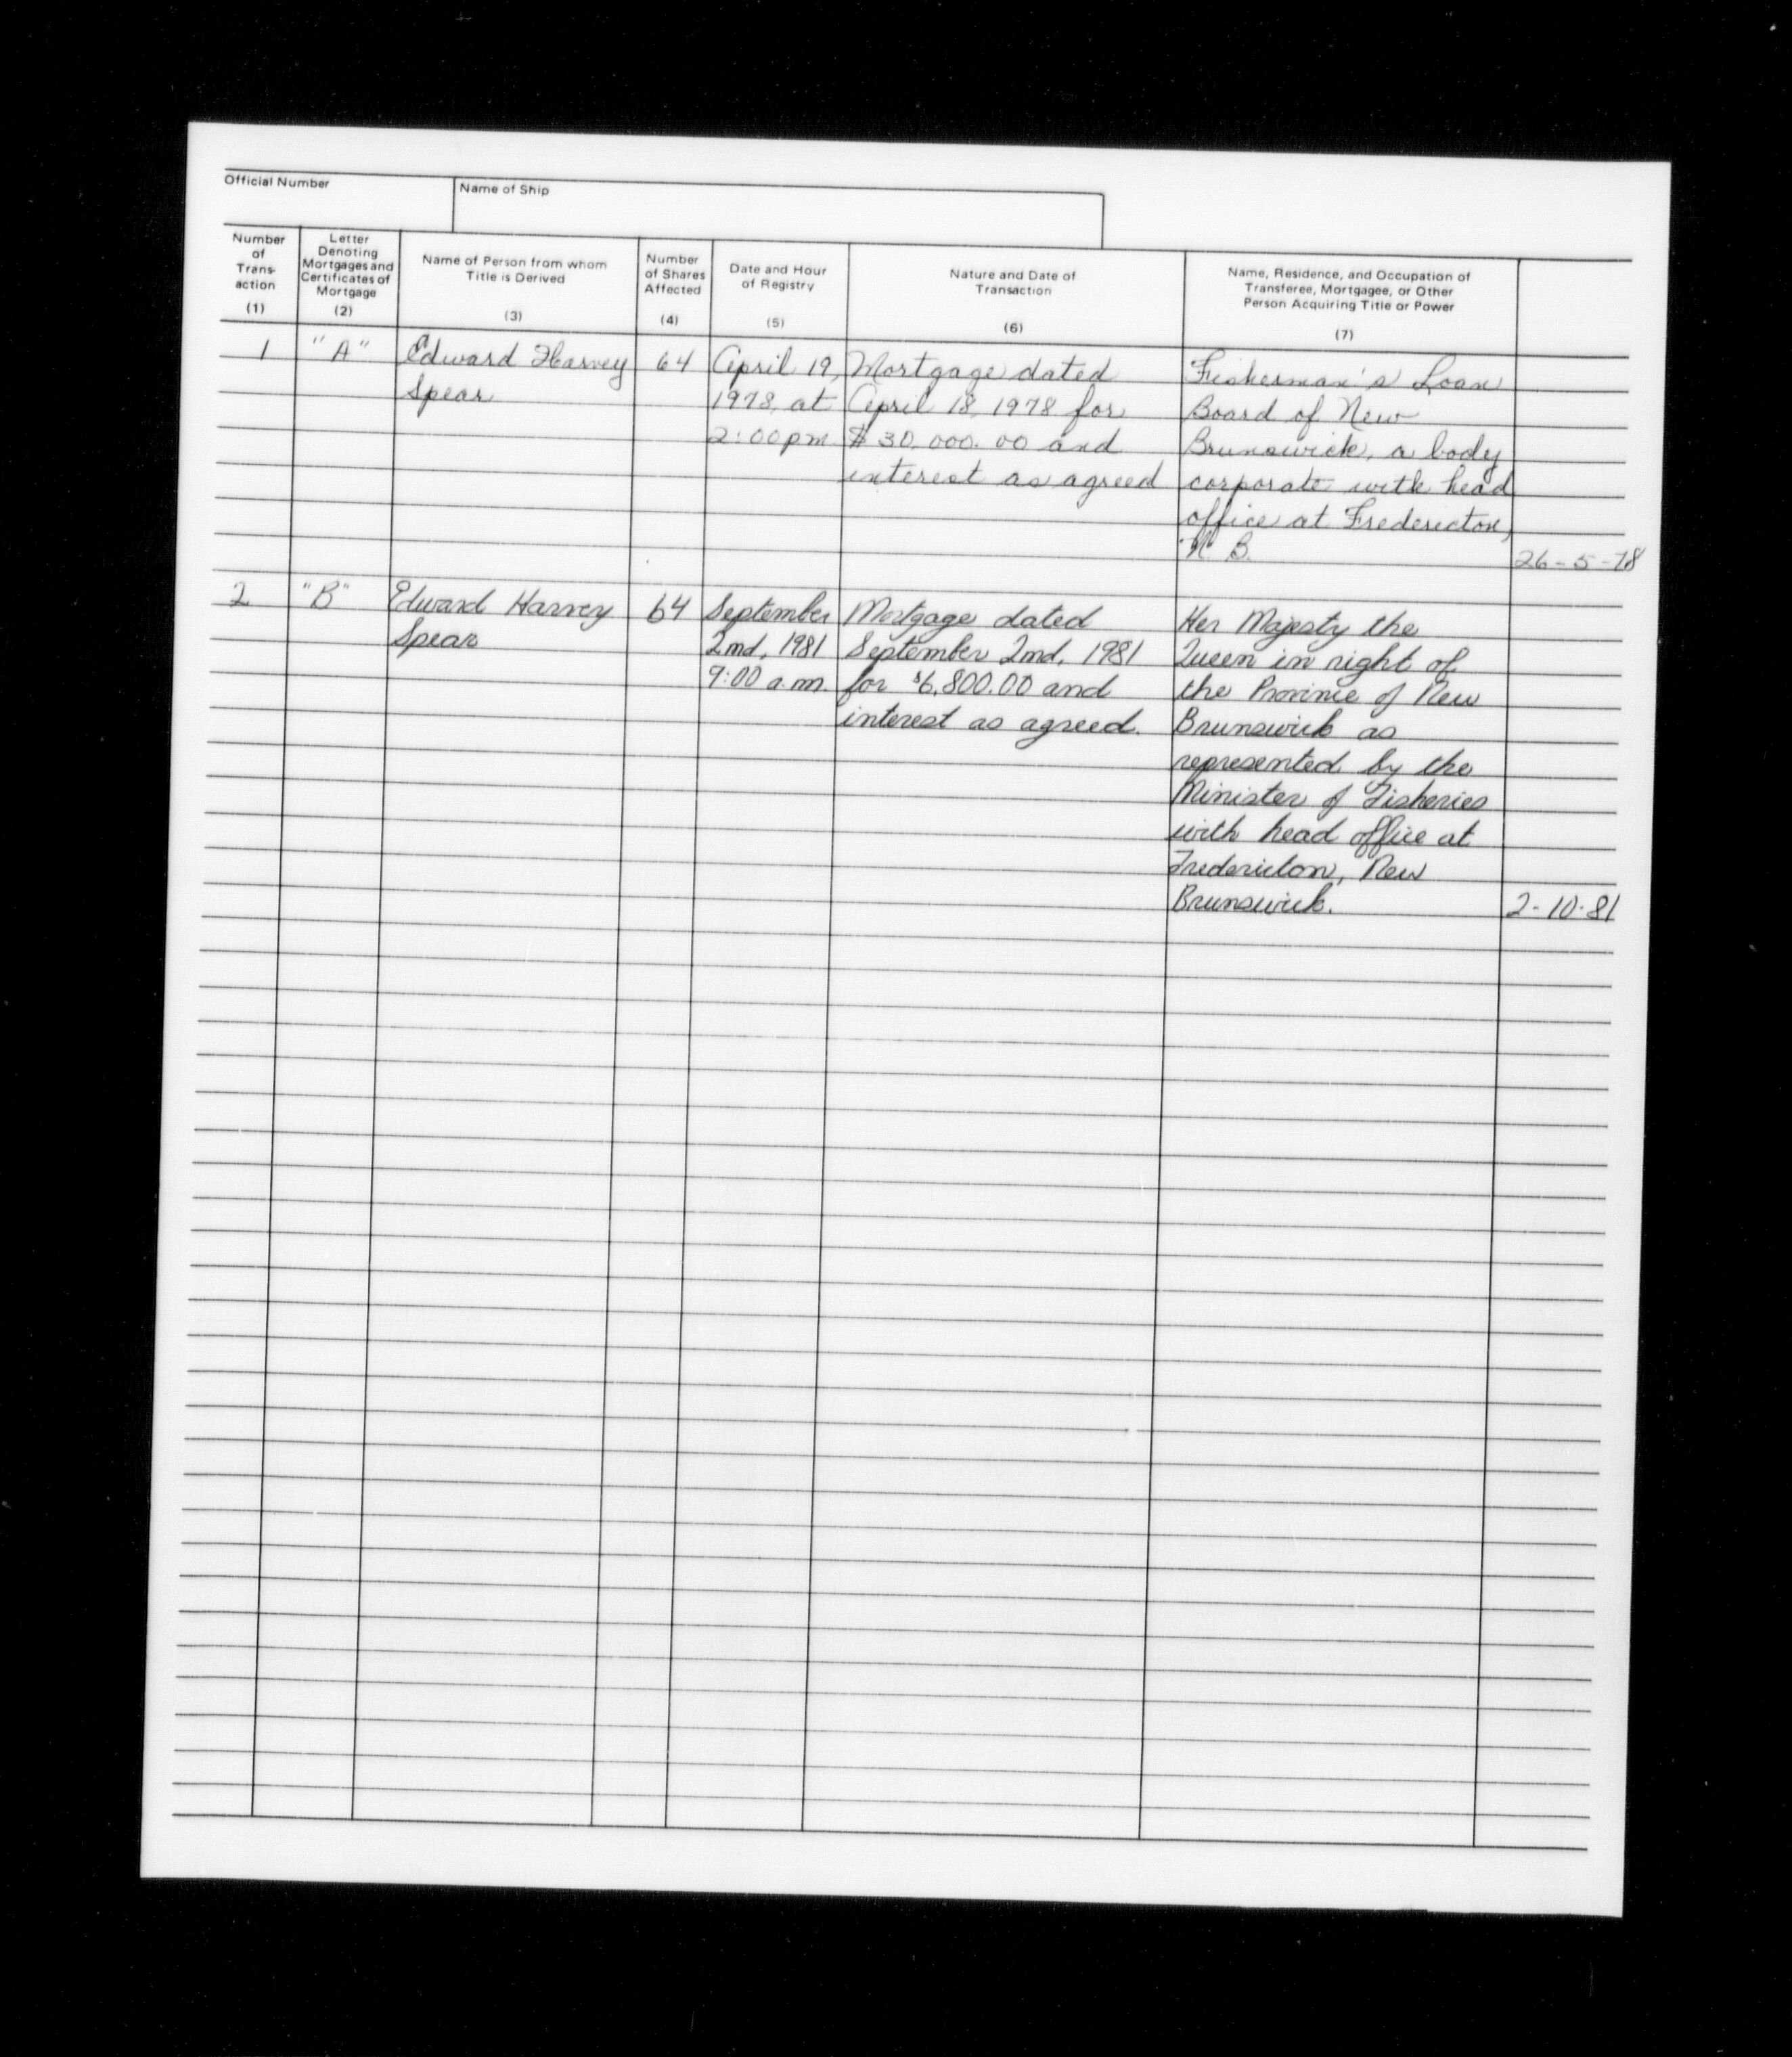 Official Number
Name of Ship
Number
of
Trans-
action
(1)
Letter
Denoting
Mortgages and
Certificates of
Mortgage
(2)
Name of Person from whom
Title is Derived
(3)
Number
of Shares
Affected
(4)
Date and Hour
of Registry
(5)
Nature and Date of
Transaction
(6)
Name, Residence, and Occupation of
Transferee, Mortgagee, or Other
Person Acquiring Title or Power
(7)
1
"A"
Edward Harvey
Spear
64
April 19,
1978, at
2:00 pm
Mortgage dated
April 18, 1978 for
$30,000.00 and
interest as agreed
Fisherman's Loan
Board of New
Brunswick, a body
corporate with head
office at Fredericton,
N. B.
26-5-78
2
"B"
Edward Harvey
Spear
64
September
2nd, 1981
9:00 a.m.
Mortgage dated
September 2nd, 1981
for $6,800.00 and
interest as agreed.
Her Majesty the
Queen in right of
the Province of New
Brunswick as
represented by the
Minister of Fisheries
with head office at
Fredericton, New
Brunswick.
2-10-81